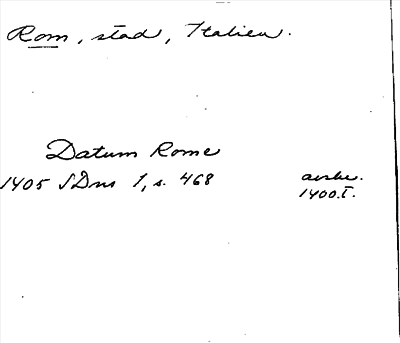 Rom, stad, Italien.
Datum Rome
1405 SDns 1, s. 468
avskr.
1400.t.